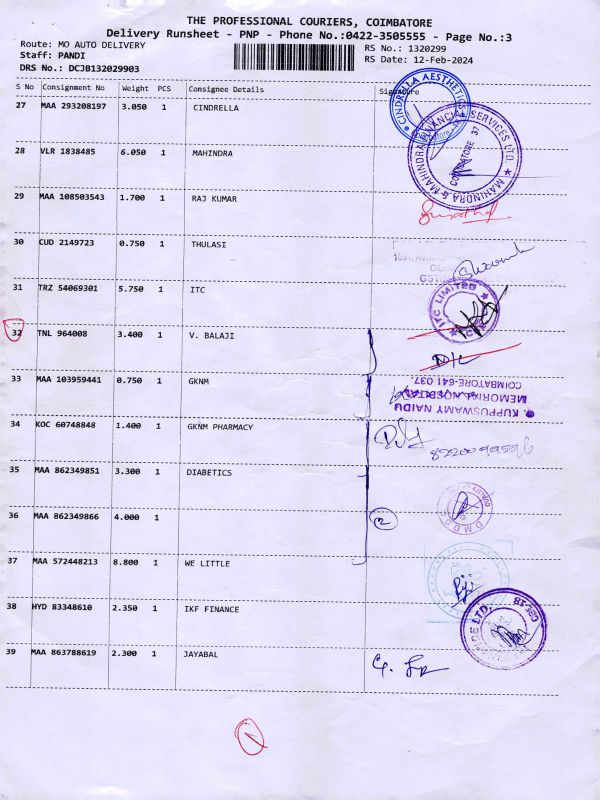 THE PROFESSIONAL COURIERS, COIMBATORE
Delivery Runsheet - PNP - Phone No.:0422-3505555 - Page No.:3
Route: MO AUTO DELIVERY
RS No.: 1320299
Staff: PANDI
RS Date: 12-Feb-2024
DRS No.: DCJB132029903
S No Consignment No Weight PCS Consignee Details Signature
27 MAA 293208197 3.050 1 CINDRELLA
CINDRELLA AESTHETIC
28 VLR 1838485 6.050 1 MAHINDRA
MAHINDRA & MAHINDRA FINANCIAL SERVICES LTD.
COIMBATORE 37
29 MAA 108503543 1.700 1 RAJ KUMAR
30 CUD 2149723 0.750 1 THULASI
31 TRZ 54069301 5.750 1 ITC
ITC LIMITED
32 TNL 964008 3.400 1 V. BALAJI
D/L
33 MAA 103959441 0.750 1 GKNM
KUPPUSWAMY NAIDU
MEMORIAL HOSPITAL
COIMBATORE-641 037.
34 KOC 60748848 1.400 1 GKNM PHARMACY
35 MAA 862349851 3.300 1 DIABETICS
36 MAA 862349866 4.000 1
2
37 MAA 572448213 8.800 1 WE LITTLE
38 HYD 83348610 2.350 1 IKF FINANCE
CBE-18
39 MAA 863788619 2.300 1 JAYABAL
1